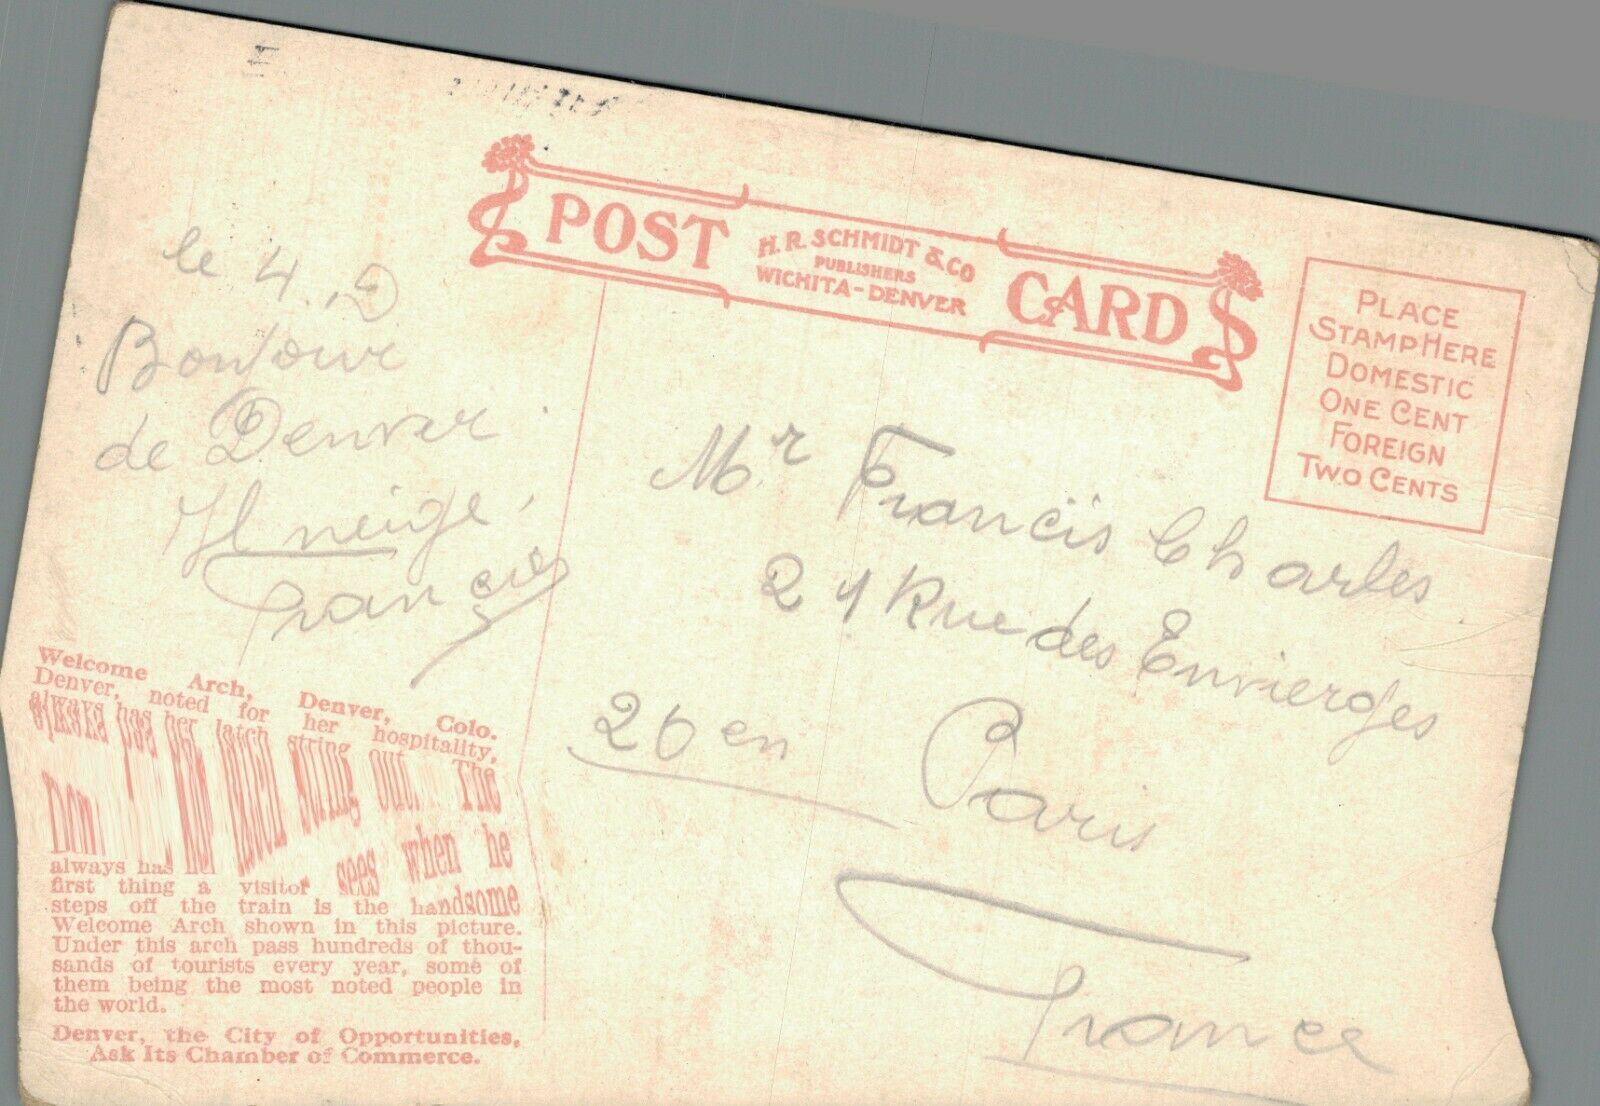 POST CARD
H. R. SCHMIDT & CO
PUBLISHERS
WICHITA - DENVER
PLACE
STAMP HERE
DOMESTIC
ONE CENT
FOREIGN
TWO CENTS
le 4. D
Bonjour
de Denver.
Il neige.
François
Mr Francis Charles
21 Rue des Envierges
20en Paris
France
Welcome Arch, Denver, Colo.
Denver, noted for her hospitality,
always has her latch string out. The
always has
sees when he
first thing a visitor
steps off the train is the handsome
Welcome Arch shown in this picture.
Under this arch pass hundreds of thou-
sands of tourists every year, some of
them being the most noted people in
the world.
Denver, the City of Opportunities,
Ask Its Chamber of Commerce.